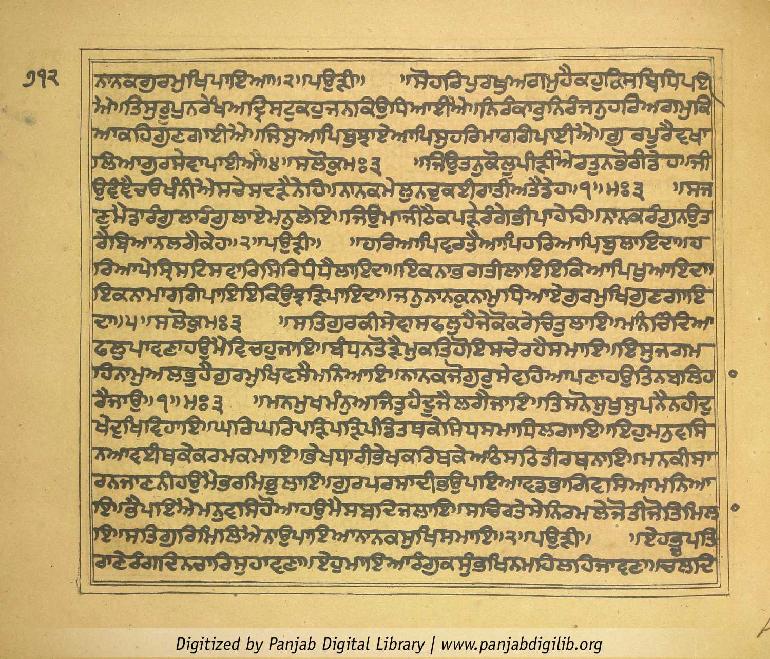 ੭੧੨
ਨਾਨਕਗੁਰਮੁਖਿਪਾਇਆ॥੨॥ਪਉੜੀ॥ ॥ਸੋਹਰਿਪੁਰਖੁਅਗਮੁਹੈਕਹੁਕਿਤੁਬਿਧਿਪਾਈ
ਐ॥ਤਿਸੁਰੂਪੁਨਰੇਖਅਦ੍ਰਿਸਟੁਕਹੁਜਨਾਕਿਉਧਿਆਈਐ॥ਨਿਰੰਕਾਰੁਨਿਰੰਜਨੁਹਰਿਅਗਮੁਕਿ
ਆਕਹਿਗੁਣਗਾਈਐ॥ਜਿਸੁਆਪਿਬੁਝਾਏਆਪਿਸੁਹਰਿਮਾਰਗਿਪਾਈਐ॥ਗੁਰਪੂਰੈਵੇਖਾ
ਲਿਆਗੁਰਸੇਵਾਪਾਈਐ॥੪॥ਸਲੋਕੁਮਃ੩ ॥ਜਿਉਤਨੁਕੋਲੂਪੀੜੀਐਰਤੁਨਭੋਰੀਡੇਹਾ॥ਜੀ
ਉਵੰਞੈਚਉਖੰਨੀਐਸਚੇਸੰਦੜੈਨੇਹਿ॥ਨਾਨਕਮੇਲੁਨਚੁਕਈਰਾਤੀਅਤੈਡੇਹ॥੧॥ਮਃ੩ ॥ਸਜ
ਣੁਮੈਡਾਰੰਗੁਲਾਰੰਗੁਲਾਏਮਨੁਲੇਇ॥ਜਿਉਮਾਜੀਠੈਕਪੜੇਰੰਗੇਭੀਪਾਹੇਹਿ॥ਨਾਨਕਰੰਗੁਨਉਤ
ਰੈਬਿਆਨਲਗੈਕੇਹ॥੨॥ਪਉੜੀ॥ ॥ਹਰਿਆਪਿਵਰਤੈਆਪਿਹਰਿਆਪਿਬੁਲਾਇਦਾ॥ਹ
ਰਿਆਪੇਸ੍ਰਿਸਟਿਸਵਾਰਿਸਿਰਿਧੰਧੈਲਾਇਦਾ॥ਇਕਨਾਭਗਤੀਲਾਇਇਕਿਆਪਿਖੁਆਇਦਾ॥
ਇਕਨਾਮਾਰਗਿਪਾਇਇਕਿਉਝੜਿਪਾਇਦਾ॥ਜਨੁਨਾਨਕੁਨਾਮੁਧਿਆਏਗੁਰਮੁਖਿਗੁਣਗਾਇ
ਦਾ॥੫॥ਸਲੋਕੁਮਃ੩ ॥ਸਤਿਗੁਰਕੀਸੇਵਾਸਫਲੁਹੈਜੇਕੋਕਰੇਚਿਤੁਲਾਇ॥ਮਨਿਚਿੰਦਿਆ
ਫਲੁਪਾਵਣਾਹਉਮੈਵਿਚਹੁਜਾਇ॥ਬੰਧਨਤੋੜੈਮੁਕਤਿਹੋਇਸਚੇਰਹੈਸਮਾਇ॥ਇਸੁਜਗਮ
ਹਿਨਾਮੁਅਲਭੁਹੈਗੁਰਮੁਖਿਵਸੈਮਨਿਆਇ॥ਨਾਨਕਜੋਗੁਰੁਸੇਵਹਿਆਪਣਾਹਉਤਿਨਬਲਿਹਾ
ਰੈਜਾਉ॥੧॥ਮਃ੩ ॥ਮਨਮੁਖਮੰਨੁਅਜਿਤੁਹੈਦੂਜੈਲਗੈਜਾਇ॥ਤਿਸਨੋਸੁਖੁਸੁਪਨੈਨਹੀਦੁ
ਖੇਦੁਖਿਵਿਹਾਇ॥ਘਰਿਘਰਿਪੜਿਪੜਿਪੰਡਿਤਥਕੇਸਿਧਸਮਾਧਿਲਗਾਇ॥ਇਹੁਮਨੁਵਸਿ
ਨਆਵਈਥਕੇਕਰਮਕਮਾਇ॥ਭੇਖਧਾਰੀਭੇਖਕਰਿਥਕੇਅਠਿਸਠਿਤੀਰਥਨਾਇ॥ਮਨਕੀਸਾ
ਰਨਜਾਣਨੀਹਉਮੈਭਰਮਿਭੁਲਾਇ॥ਗੁਰਪਰਸਾਦੀਭਉਪਇਆਵਡਭਾਗਿਵਸਿਆਮਨਿਆ
ਇ॥ਭੈਪਇਐਮਨੁਵਸਿਹੋਆਹਉਮੈਸਬਦਿਜਲਾਇ॥ਸਚਿਰਤੇਸੇਨਿਰਮਲੇਜੋਤੀਜੋਤਿਮਿਲਾ
ਇ॥ਸਤਿਗੁਰਿਮਿਲਿਐਨਾਉਪਾਇਆਨਾਨਕਸੁਖਿਸਮਾਇ॥੨॥ਪਉੜੀ॥ ॥ਏਹਭੂਪਤਿ
ਰਾਣੇਰੰਗਦਿਨਚਾਰਿਸੁਹਾਵਣਾ॥ਏਹੁਮਾਇਆਰੰਗੁਕਸੁੰਭਖਿਨਮਹਿਲਹਿਜਾਵਣਾ॥ਚਲਦਿ
Digitized by Panjab Digital Library | www.panjabdigilib.org